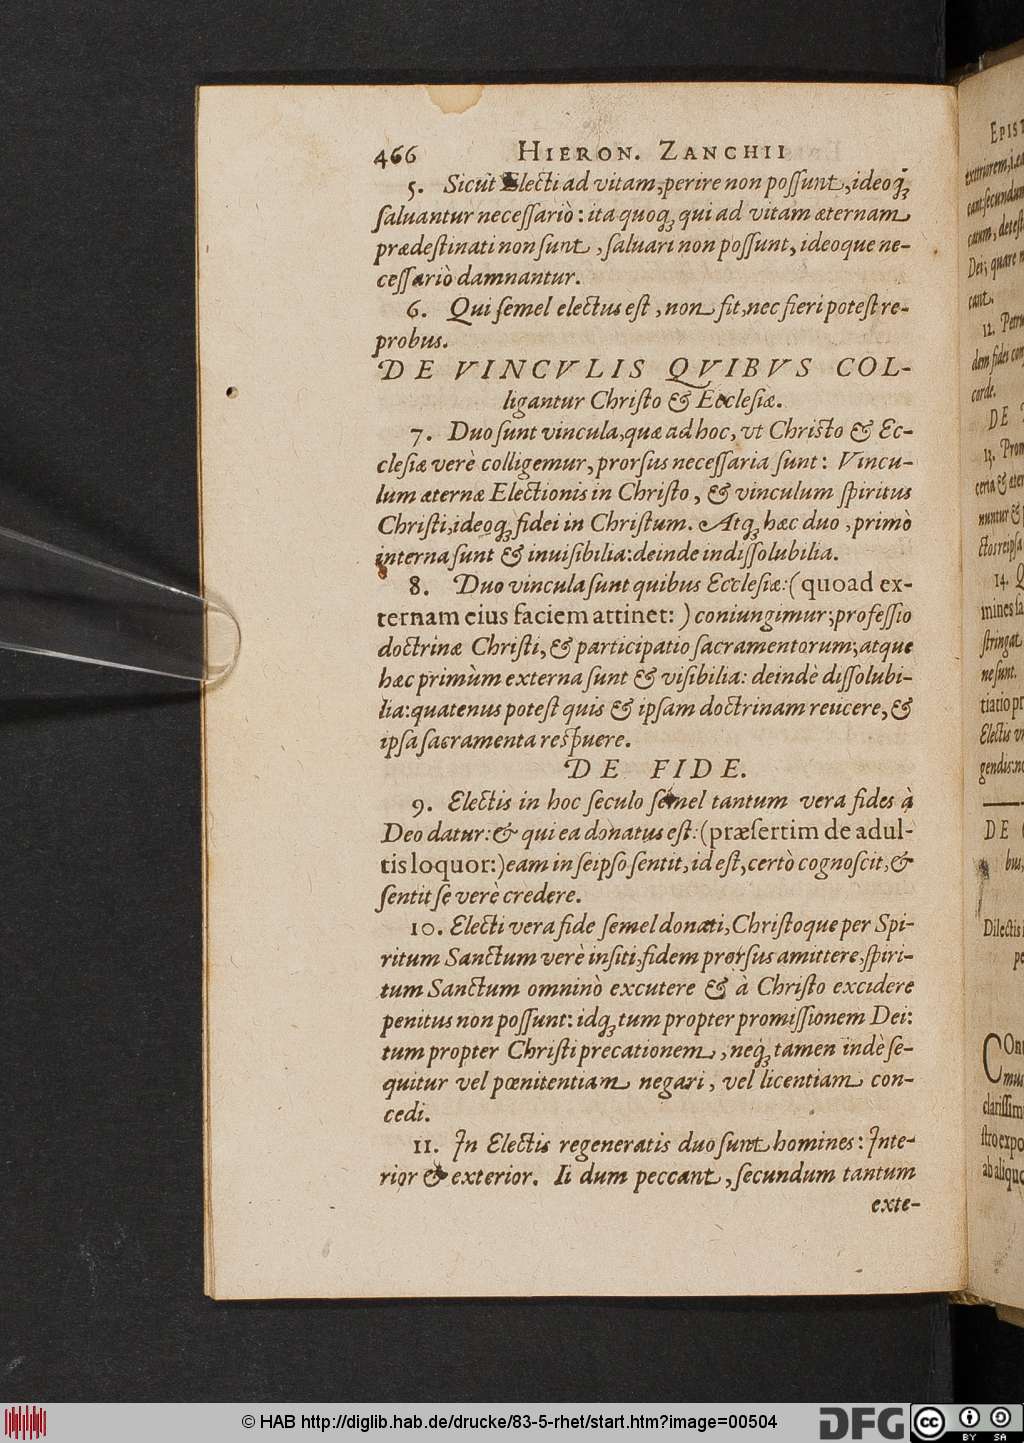 466 HIERON. ZANCHII
5. Sicut Electi ad vitam, perire non poſſunt, ideoq́ꝫ
ſaluantur neceſſariò: ita quoqꝫ qui ad vitam æternam
prædeſtinati non ſunt, ſaluari non poſſunt, ideoque ne-
ceſſariò damnantur.
6. Qui ſemel electus eſt, non fit, nec fieri poteſt re-
probus.
DE VINCVLIS QVIBVS COL-
ligantur Chriſto & Eccleſiæ.
7. Duo ſunt vincula, quæ ad hoc, vt Chriſto & Ec-
cleſiæ verè colligemur, prorſus neceſſaria ſunt: Vincu-
lum æternæ Electionis in Chriſto, & vinculum ſpiritus
Chriſti, ideoqꝫ fidei in Chriſtum. Atqꝫ hæc duo, primò
interna ſunt & inuiſibilia: deinde indiſſolubilia.
8. Duo vincula ſunt quibus Eccleſiæ: (quoad ex-
ternam eius faciem attinet: ) coniungimur; profeſſio
doctrinæ Chriſti, & participatio ſacramentorum; atque
hæc primùm externa ſunt & viſibilia: deindè diſſolubi-
lia: quatenus poteſt quis & ipſam doctrinam reiicere, &
ipſa ſacramenta reſpuere.
DE FIDE.
9. Electis in hoc ſeculo ſemel tantum vera fides à
Deo datur: & qui ea donatus eſt: (præſertim de adul-
tis loquor:) eam in ſeipſo ſentit, id eſt, certò cognoſcit, &
ſentit ſe verè credere.
10. Electi vera fide ſemel donati, Chriſtoque per Spi-
ritum Sanctum verè inſiti, fidem prorſus amittere, ſpiri-
tum Sanctum omninò excutere & à Chriſto excidere
penitus non poſſunt: idqꝫ tum propter promiſſionem Dei:
tum propter Chriſti precationem, neq́ꝫ tamen indè ſe-
quitur vel pœnitentiam negari, vel licentiam con-
cedi.
11. In Electis regeneratis duo ſunt homines: Inte-
rior & exterior. Ii dum peccant, ſecundum tantum
exte-
EPIST
cant ſecundum
Dei; quare
cant.
12. Petru
dem fides
corde.
DE
13. Prom
nuntur &
14. Q
mines ſa
ſtringat
ne ſunt.
tiatio pr
Electis
gendis:
DE
bus,
Dilectis
pe
COn
mu
clariſſim
ſtro expo
ab aliquo
© HAB http://diglib.hab.de/drucke/83-5-rhet/start.htm?image=00504
DFG
cc BY SA